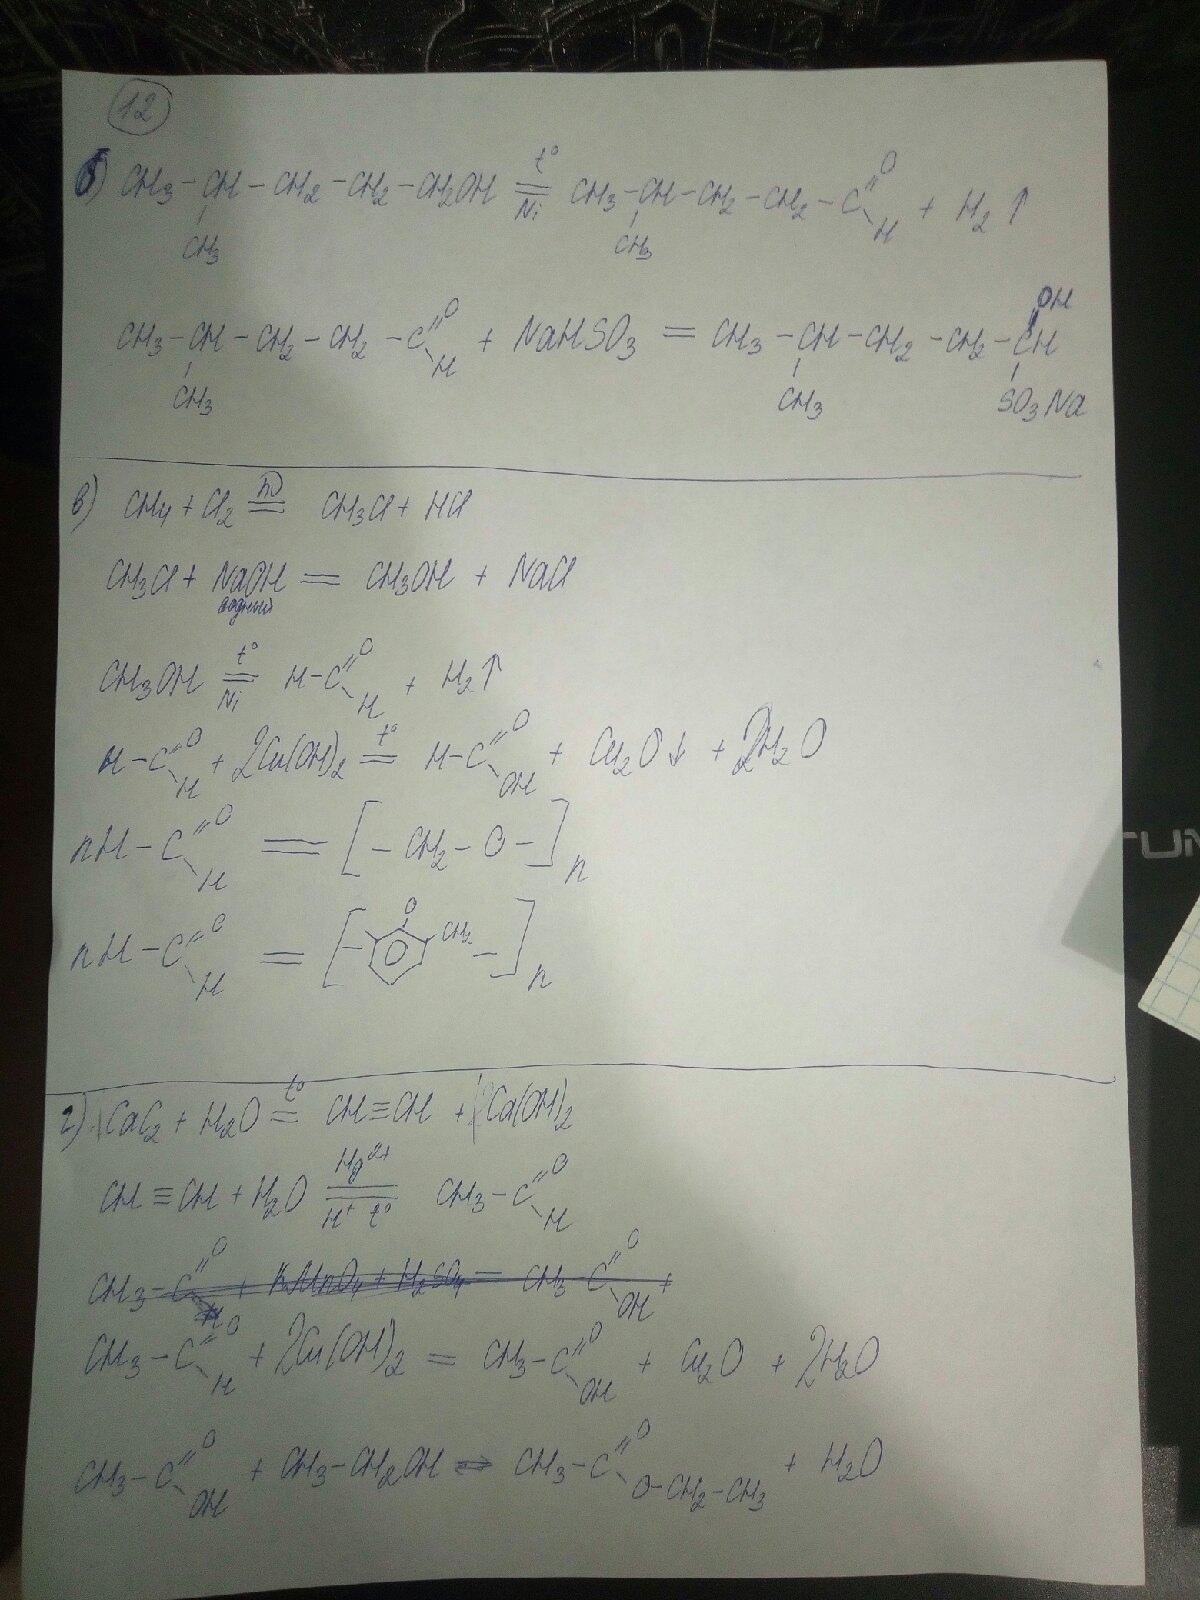 12
б) CH3 – CH – CH2 – CH2 – CH2OH =(t°, Ni)= CH3 – CH – CH2 – CH2 – C(=O)–H + H2↑
CH3 CH3
CH3 – CH – CH2 – CH2 – C(=O)–H + NaHSO3 = CH3 – CH – CH2 – CH2 – CH(OH)
CH3 CH3 SO3Na
в) CH4 + Cl2 =(hν)= CH3Cl + HCl
CH3Cl + NaOH = CH3OH + NaCl
водный
CH3OH =(t°, Ni)= H–C(=O)–H + H2↑
H–C(=O)–H + 2Cu(OH)2 =(t°)= H–C(=O)–OH + Cu2O↓ + 2H2O
nH–C(=O)–H = [– CH2 – O –]n
nH–C(=O)–H = [– O CH2 –]n
г) CaC2 + H2O =(t°)= CH≡CH + Ca(OH)2
CH≡CH + H2O =(Hg2+, H+ t°)= CH3–C(=O)–H
CH3–C(=O)–H + KMnO4 + H2SO4 = CH3–C(=O)–OH +
CH3–C(=O)–H + 2Cu(OH)2 = CH3–C(=O)–OH + Cu2O + 2H2O
CH3–C(=O)–OH + CH3–CH2OH ⇌ CH3–C(=O)–O–CH2–CH3 + H2O
TUN